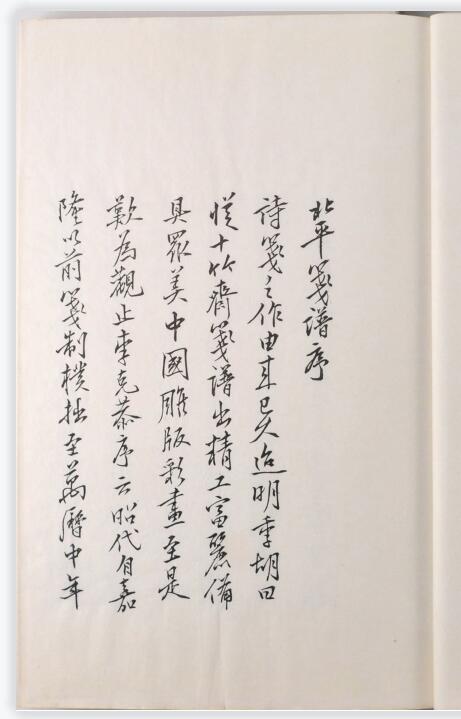 北平箋譜序
詩箋之作由来已久迨明季胡曰
従十竹齋箋譜出精工富麗備
具眾美中國雕版彩畫至是
歎為觀止李克恭序云昭代自嘉
隆以前箋制樸拙至萬曆中年